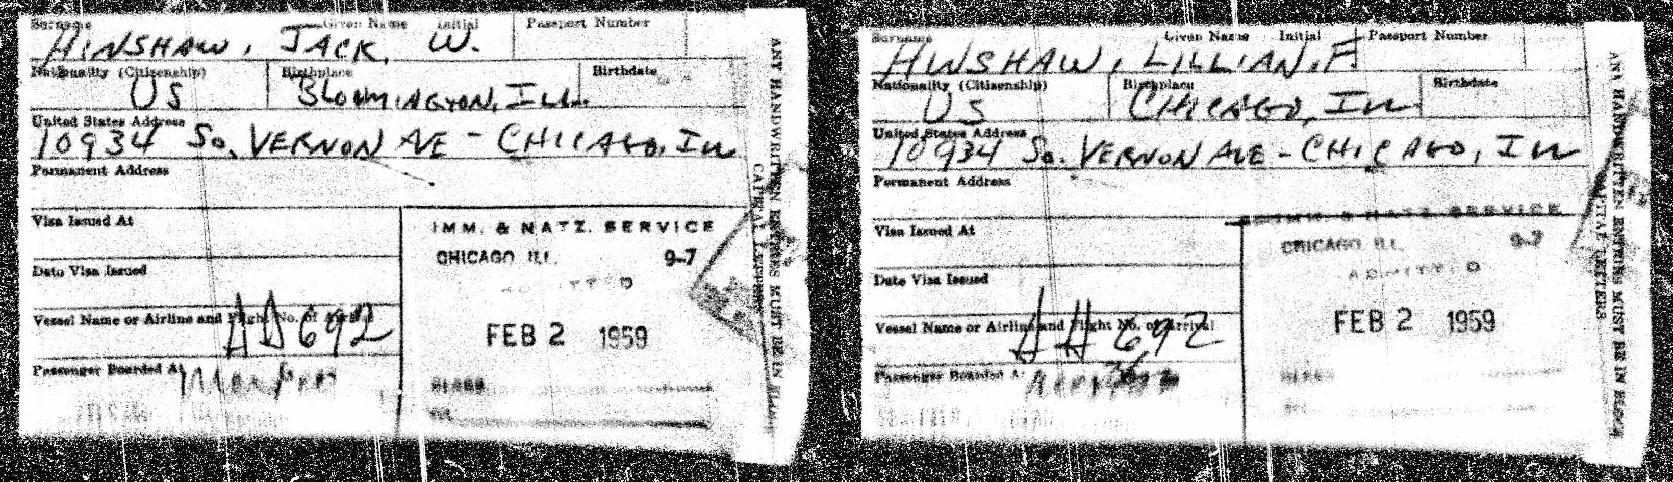 Surname Given Name Initial Passport Number
HINSHAW, JACK, W.
Nationality (Citizenship) Birthplace Birthdate
US BLOOMINGTON, ILL.
United States Address
10934 So. VERNON AVE - CHICAGO, ILL
Permanent Address
Visa Issued At
IMM. & NATZ. SERVICE
CHICAGO ILL. 9-7
Date Visa Issued
ADMITTED
Vessel Name or Airline and Flight No. of Arrival
692
FEB 2 1959
Passenger Boarded At
CLASS
ANY HANDWRITTEN ENTRIES MUST BE IN BLOCK
CAPITAL LETTERS
Surname Given Name Initial Passport Number
HINSHAW, LILLIAN, F.
Nationality (Citizenship) Birthplace Birthdate
US CHICAGO, ILL
United States Address
10934 So. VERNON AVE - CHICAGO, ILL
Permanent Address
Visa Issued At
IMM. & NATZ. SERVICE
CHICAGO ILL. 9-7
Date Visa Issued
ADMITTED
Vessel Name or Airline and Flight No. of Arrival
692
FEB 2 1959
Passenger Boarded At
CLASS
ANY HANDWRITTEN ENTRIES MUST BE IN BLOCK
CAPITAL LETTERS